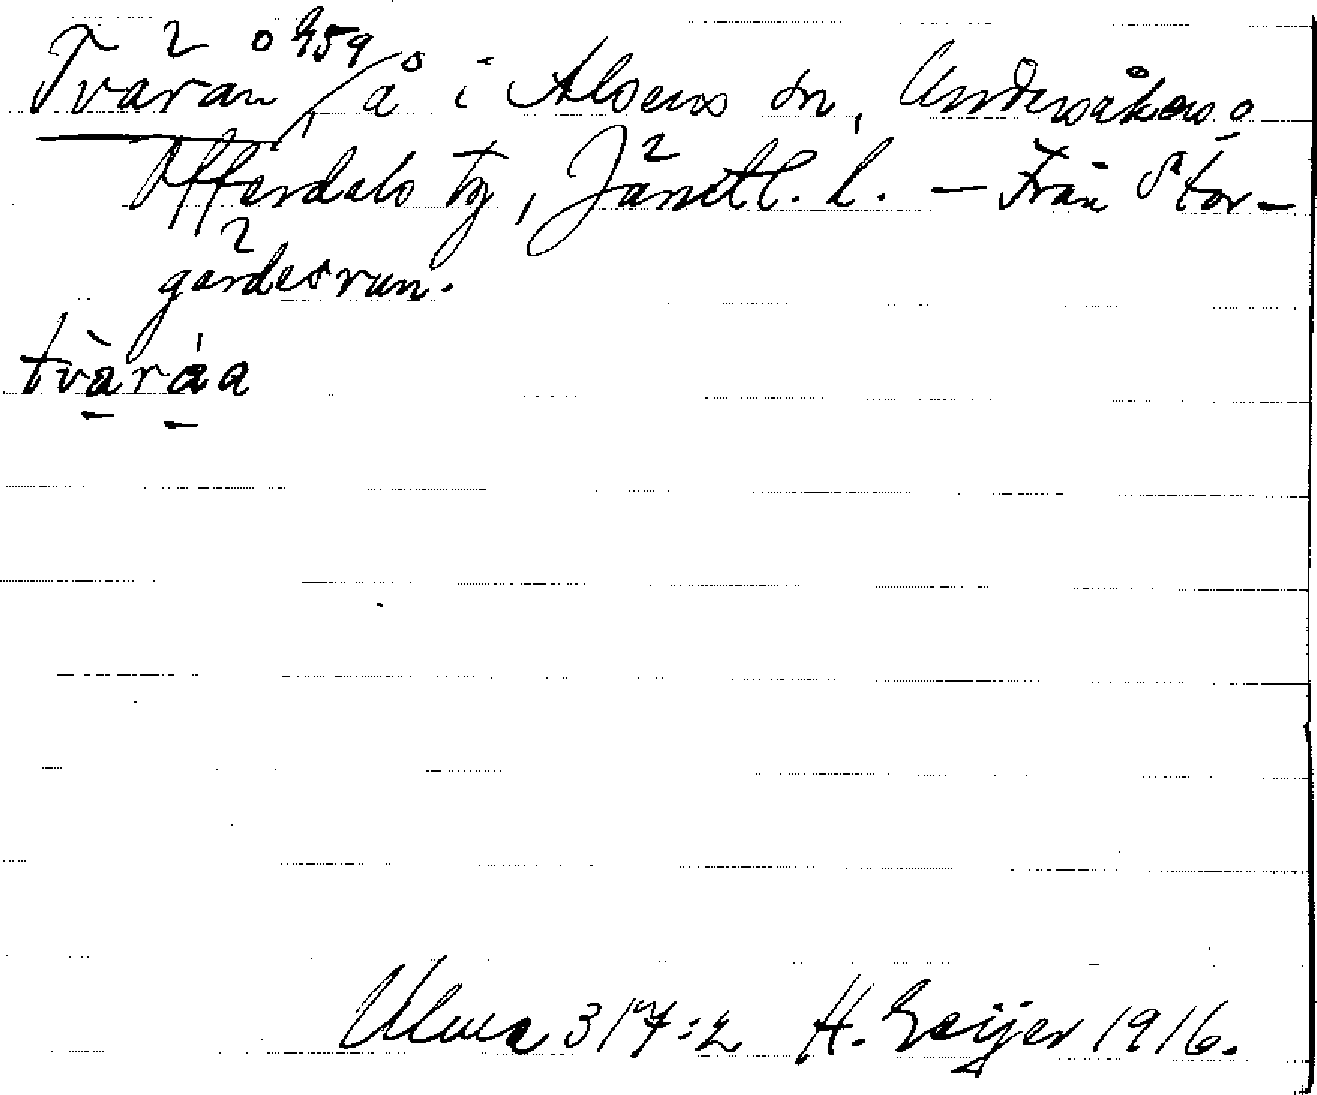 Tväråan, å i Alsens sn, Undersåkers o
Offerdals tg, Jämtl. l. – Från Stor-
gärdesvun.
tvàráa
Ulma 317:2 H. Geijer 1916.